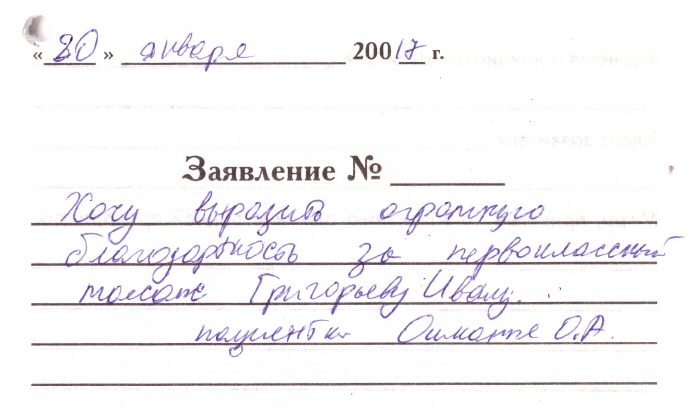 «30» января 20017 г.
Заявление №
Хочу выразить огромную
благодарность за первоклассный
массаж Григорьеву Ивану.
пациентка О.А.